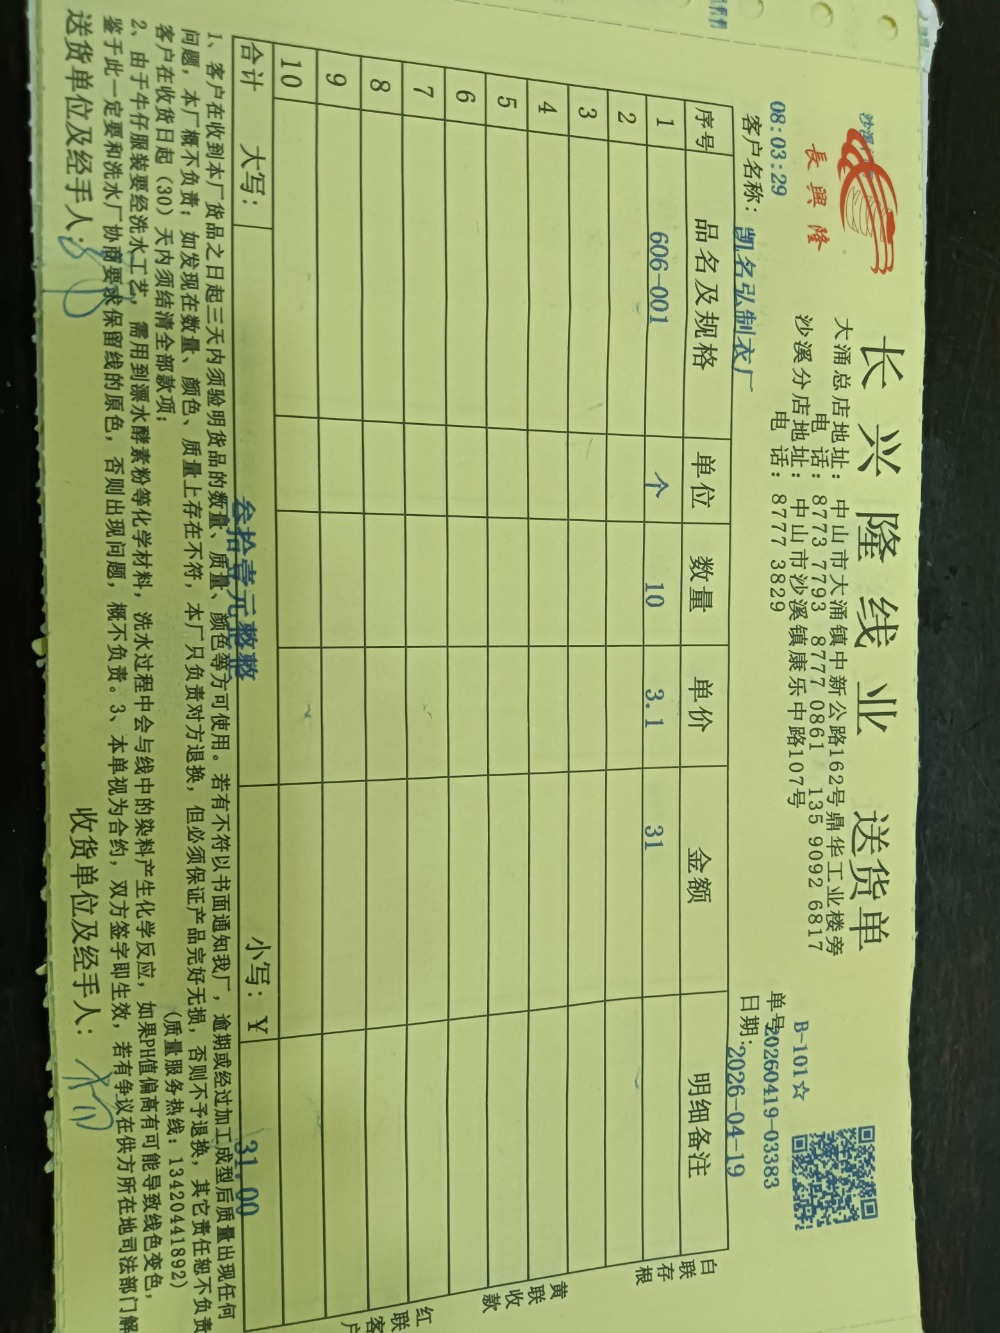 長興隆
长兴隆线业 送货单
大涌总店地址：中山市大涌镇中新公路162号鼎华工业楼旁
电 话：8773 7793 8777 0861 135 9092 6817
沙溪分店地址：中山市沙溪镇康乐中路107号
电 话：8777 3829
B-101☆
单号 20260419-03383
08:03:29
客户名称：凯名弘制衣厂
日期：2026-04-19
序号 品名及规格 单位 数量 单价 金额 明细备注
1 606-001 个 10 3.1 31
2
3
4
5
6
7
8
9
10
合计 大写：叁拾壹元整整 小写：¥ 31.00
白联存根
黄联收款
红联客户
1、客户在收到本厂货品之日起三天内须验明货品的数量、质量、颜色等方可使用。若有不符以书面通知我厂，逾期或经过加工成型后质量出现任何
问题，本厂概不负责；如发现在数量、颜色、质量上存在不符，本厂只负责对方退换，但必须保证产品完好无损，否则不予退换，其它责任恕不负责
客户在收货日起（30）天内须结清全部款项；
（质量服务热线：13420441892）
2、由于牛仔服装要经洗水工艺，需用到漂水酵素粉等化学材料，洗水过程中会与线中的染料产生化学反应，如果PH值偏高有可能导致线色变色，
鉴于此一定要和洗水厂协商要求保留线的原色，否则出现问题，概不负责。3、本单视为合约，双方签字即生效，若有争议在供方所在地司法部门解
送货单位及经手人：
收货单位及经手人：